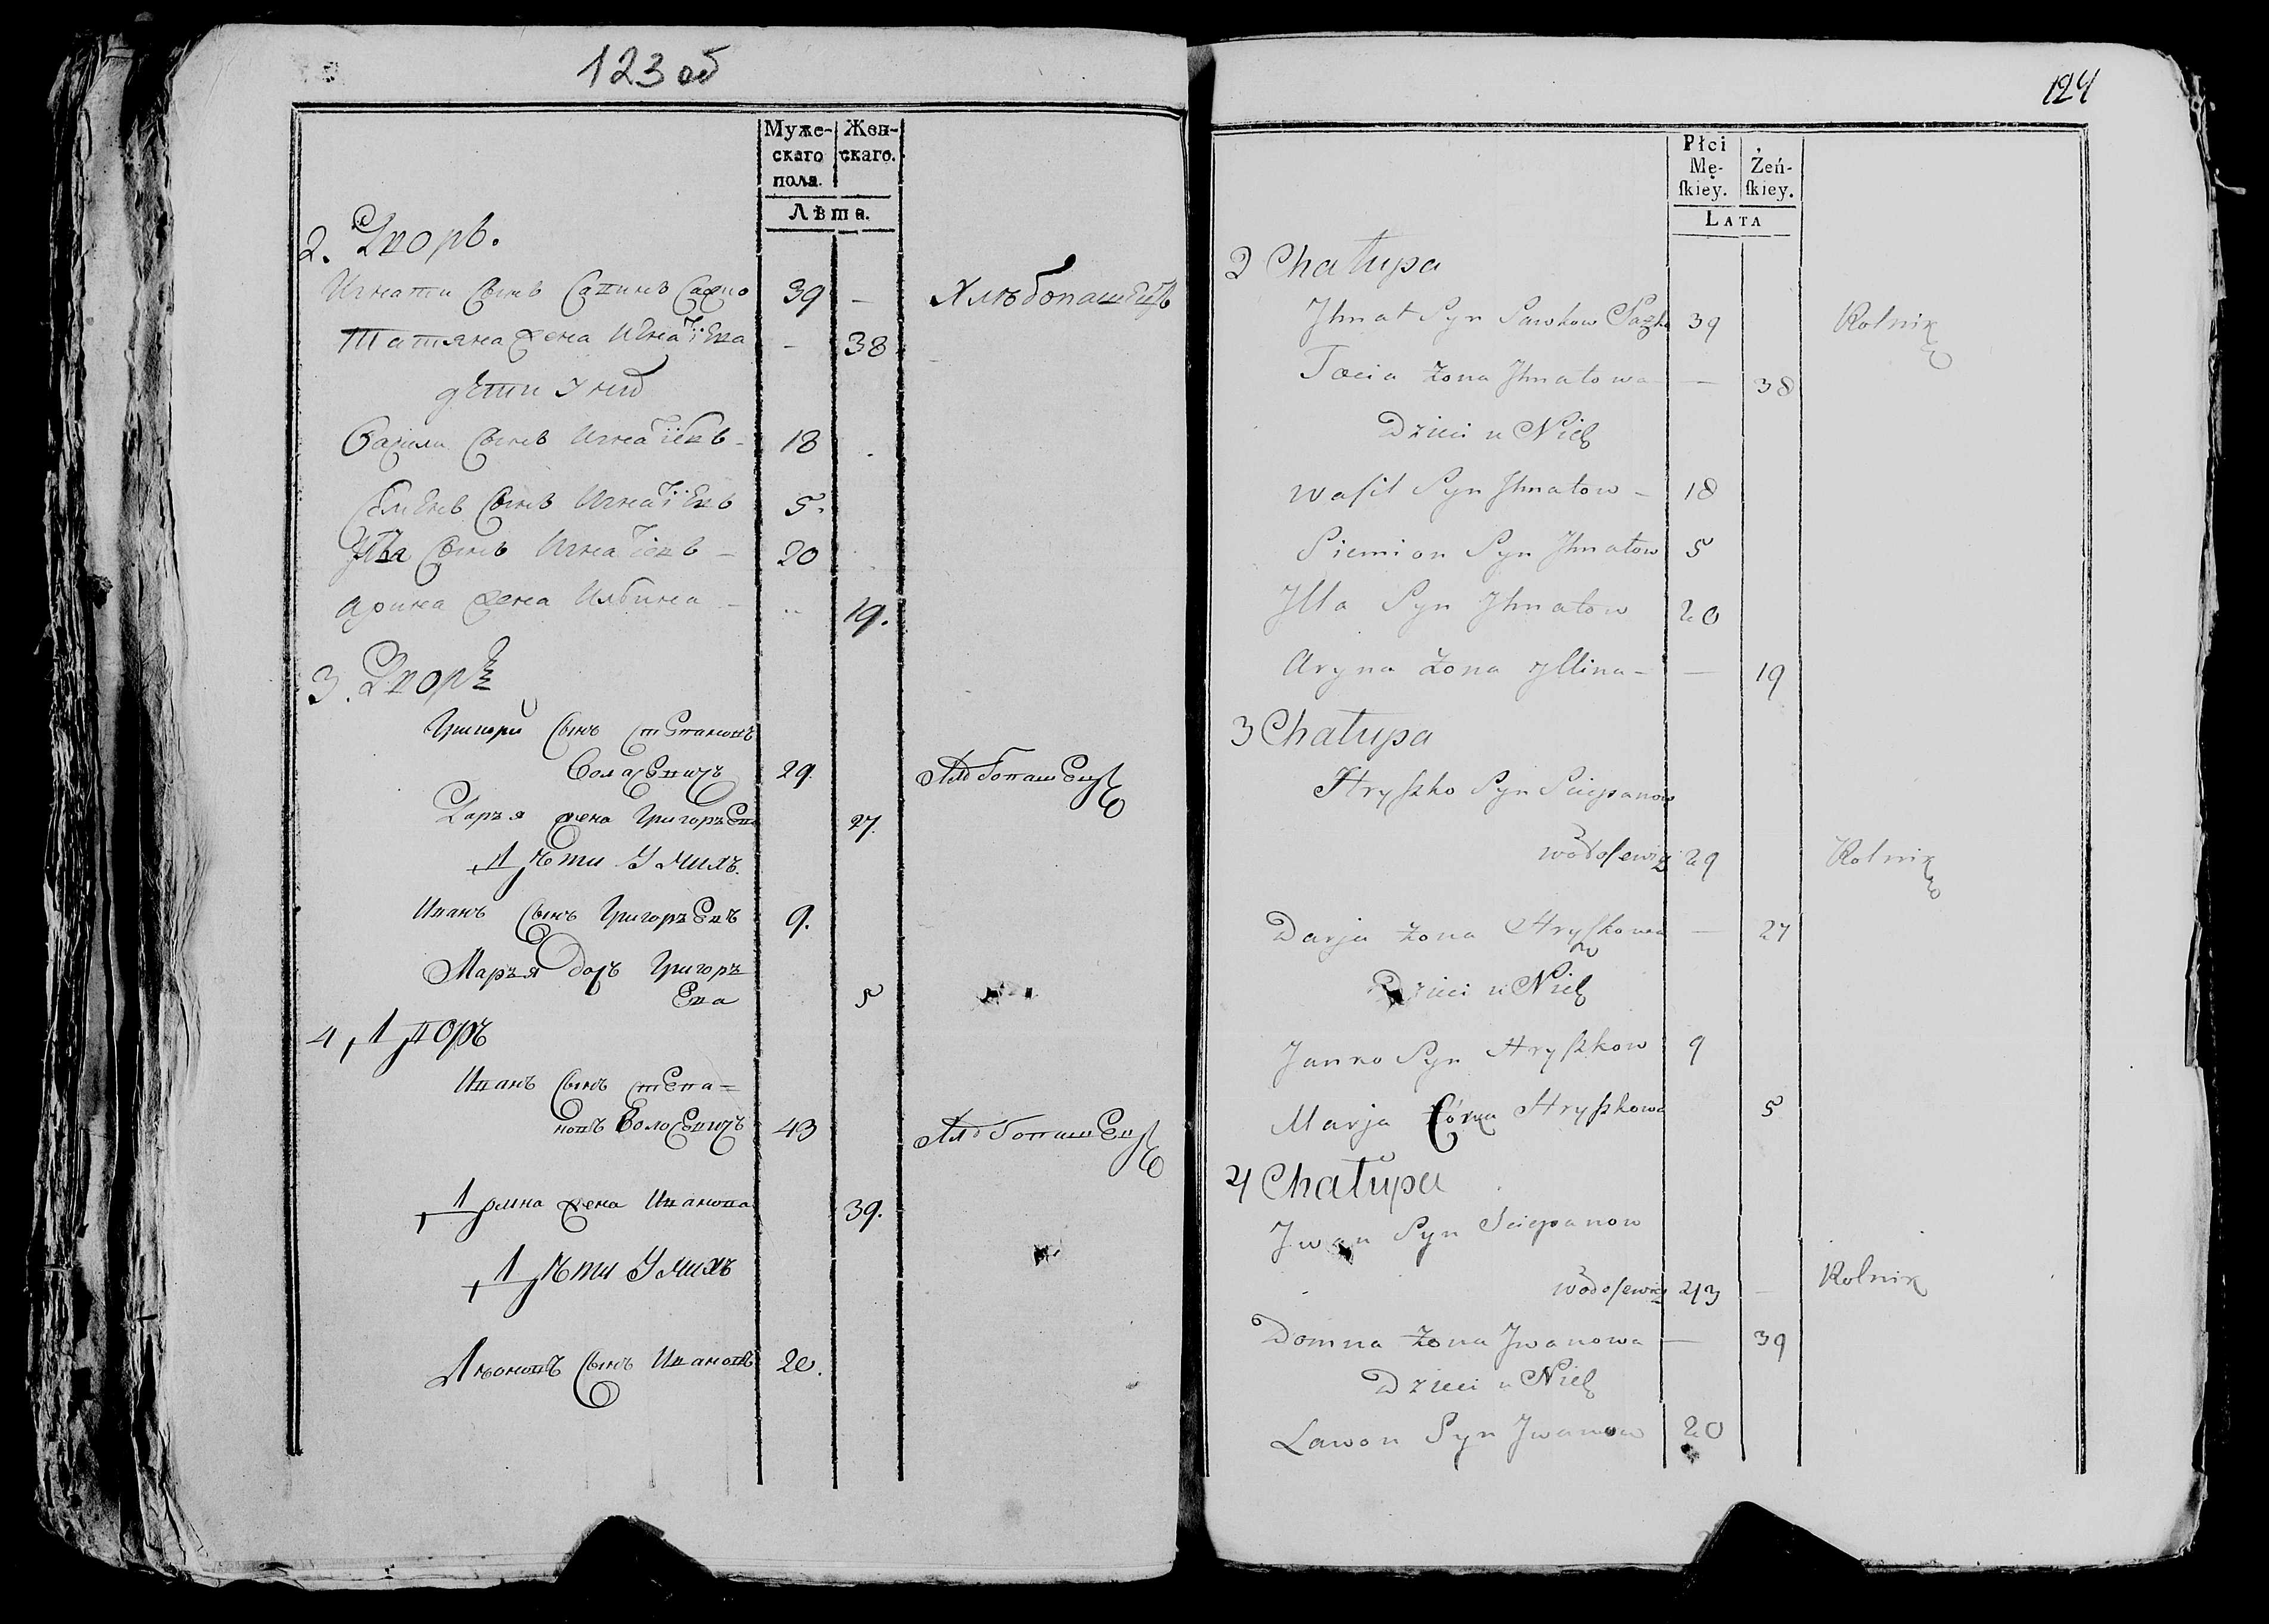 123 об
Муже-
скаго
пола.
Жен-
скаго.
Лѣта.
2. Дворъ.
Игнати Сынъ Савинъ 39 — Хлѣбопашецъ
Татяна жена Игнатіева - 38
дети у них
Васили Сынъ Игнатіевъ - 18
Семенъ Сынъ Игнатіевъ 5.
Сынъ Игнатіевъ - 20
Арина жена Ильина - 19.
3. Дворъ
Григори Сынъ Степановъ
29. Хлѣбопашецъ
Даръя жена Григоръева 27.
Дѣти У Нихъ.
Иванъ Сынъ Григоръевъ 9.
Маръя дочъ Григоръ
ева 5
4 Дворъ
Иванъ Сынъ Степа=
новъ 43 Хлѣбопашецъ
Домна жена Иванова 39.
Дѣти У Нихъ
Сынъ Ивановъ 20.
124
Płci
Mę-
ſkiey.
Żeń-
ſkiey.
LATA
2 Chałupa
Jhnat Syn Sawkow 39 Rolnik
Żona Jhnatowa — 38
Dzieci u Nich
Waſil Syn Jhnatow - 18
Siemion Syn Jhnatow 5
Jlla Syn Jhnatow 20
Aryna Żona Jllina - — 19
3 Chałupa
Hryſzko Syn Sciepanow
29 Rolnik
Darja Żona Hryſzkowa — 27
Dzieci u Nich
Janko Syn Hryſzkow 9
Marja Córka Hryſzkowa 5
4 Chałupa
Jwan Syn Sciepanow
43 — Rolnik
Domna Żona Jwanowa — 39
Dzieci u Nich
Lawon Syn Jwanow 20